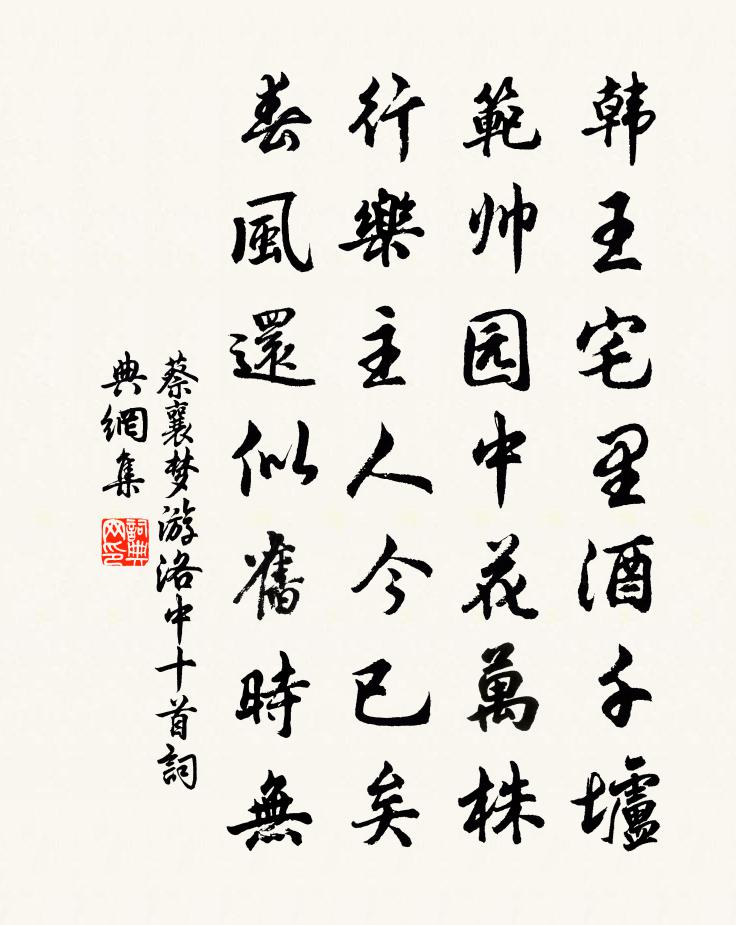 韩王宅里酒千壚
範帅园中花萬株
行樂主人今已矣
春風還似舊時無
蔡襄梦游洛中十首詞
典網集
詞典
网印